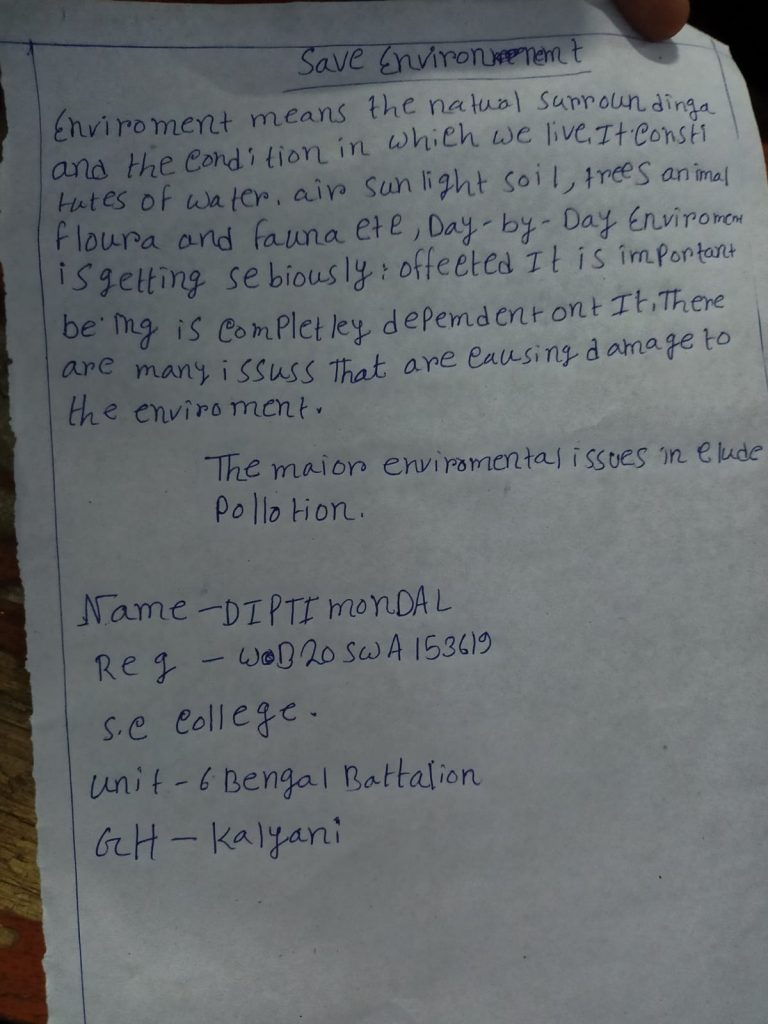 Save Environment
Enviroment means the natual surroundinga
and the condition in which we live. It consti
tutes of water. air sunlight soil, trees animal
floura and fauna ete, Day-by-Day Enviromen
is getting sebiously: offected It is important
be'ing is completley depemdent ont It. There
are many issuss That are causing damage to
the enviroment.
The maior enviromental issoes in clude
Pollotion.
Name - DIPTI monDAL
Reg - WOB20SWA153619
S.C College.
unit - 6 Bengal Battalion
GH - Kalyani